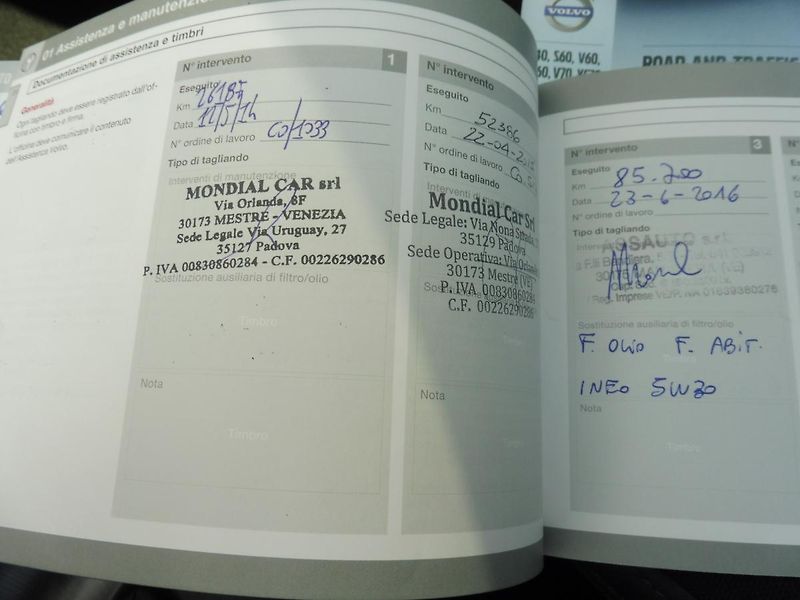 01 Assistenza e manutenzione
Documentazione di assistenza e timbri
Generalità
Ogni tagliando deve essere registrato dall'of-
ficina con timbro e firma.
L'officina deve comunicare il contenuto
dell'Assistenza Volvo.
N° intervento 1
Eseguito
Km
Data 12/5/14
N° ordine di lavoro CO/1033
Tipo di tagliando
Interventi di manutenzione
MONDIAL CAR srl
Via Orlanda, 8F
30173 MESTRE - VENEZIA
Sede Legale Via Uruguay, 27
35127 Padova
P. IVA 00830860284 - C.F. 00226290286
Sostituzione ausiliaria di filtro/olio
Timbro
Nota
Timbro
N° intervento
Eseguito
Km 52386
Data 22-04-
N° ordine di lavoro
Tipo di tagliando
Mondial Car Srl
Sede Legale: Via Nona Strada
35129 Padova
Sede Operativa: Via Orlanda
30173 Mestre (VE)
P. IVA 00830860284
C.F. 00226290286
Nota
VOLVO
S60, V60,
V70,
ROAD AND TRAFFIC
N° intervento 3
Eseguito
Km 85.200
Data 23-6-2016
N° ordine di lavoro
Tipo di tagliando
Reg. Imprese
Sostituzione ausiliaria di filtro/olio
F. OLIO F. ABIT.
INEO 5W30
Nota
Timbro